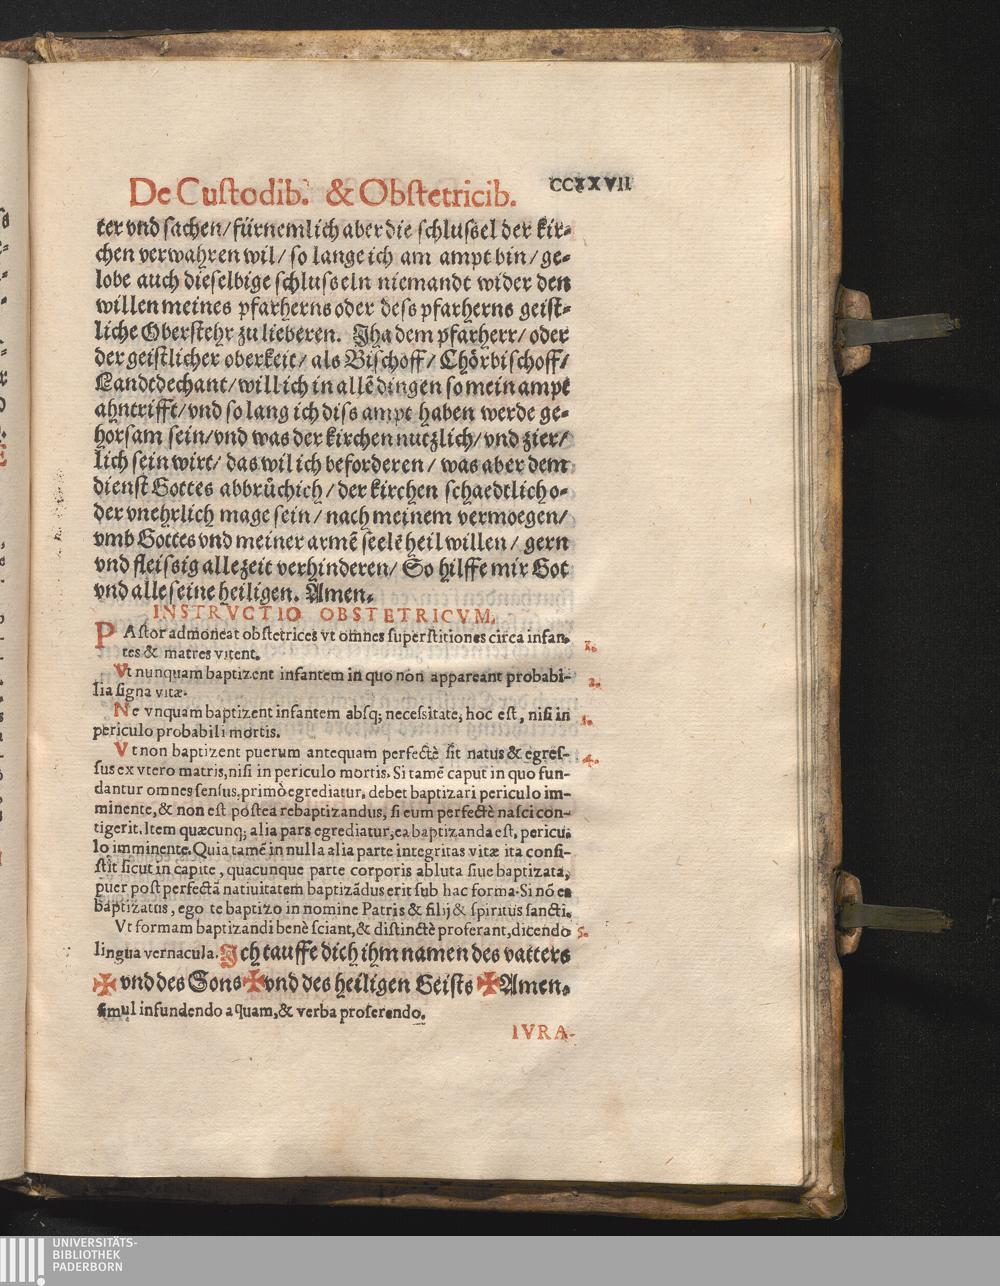 De Custodib. & Obstetricib. CCXXVII
ter vnd sachen/fürnemlich aber die schlussel der kir-
chen verwahren wil/ so lange ich am ampt bin/ ge-
lobe auch dieselbige schlusseln niemandt wider den
willen meines pfarherns oder dess pfarherns geist-
liche Oberstehr zu lieberen. Jha dem pfarherr/ oder
der geistlicher oberkeit/ als Bischoff/ Chörbischoff/
Landtdechant/ will ich in allẽ dingen so mein ampt
ahntrifft/ vnd so lang ich diss ampt haben werde ge-
horsam sein/vnd was der kirchen nutzlich/ vnd zier/
lich sein wirt/ das wil ich beforderen/ was aber dem
dienst Gottes abbrüchich/ der kirchen schaedtlich o-
der vnehrlich mage sein/ nach meinem vermoegen/
vmb Gottes vnd meiner armẽ seelẽ heil willen/ gern
vnd fleissig allezeit verhinderen/ So hilffe mir Got
vnd alle seine heiligen. Amen.
INSTRVCTIO OBSTETRICVM.
PAstor admoneat obstetrices vt omnes superstitiones circa infan- 1.
tes & matres vitent.
Vt nunquam baptizent infantem in quo non appareant probabi- 2.
lia signa vitæ.
Ne vnquam baptizent infantem absq; necessitate, hoc est, nisi in 3.
periculo probabili mortis.
Vt non baptizent puerum antequam perfectè sit natus & egres- 4.
sus ex vtero matris, nisi in periculo mortis. Si tamẽ caput in quo fun-
dantur omnes sensus, primò egrediatur, debet baptizari periculo im-
minente, & non est postea rebaptizandus, si eum perfectè nasci con-
tigerit. Item quæcunq; alia pars egrediatur, ea baptizanda est, pericu-
lo imminente. Quia tamẽ in nulla alia parte integritas vitæ ita consi-
stit sicut in capite, quacunque parte corporis abluta siue baptizata,
puer post perfectã natiuitatem baptizãdus erit sub hac forma. Si nõ es
baptizatus, ego te baptizo in nomine Patris & filij & spiritus sancti.
Vt formam baptizandi benè sciant, & distinctè proferant, dicendo 5.
lingua vernacula. Jch tauffe dich ihm namen des vatters
✠ vnd des Sons ✠ vnd des heiligen Geists ✠ Amen.
simul infundendo aquam, & verba proferendo.
IVRA-
UNIVERSITÄTS-
BIBLIOTHEK
PADERBORN